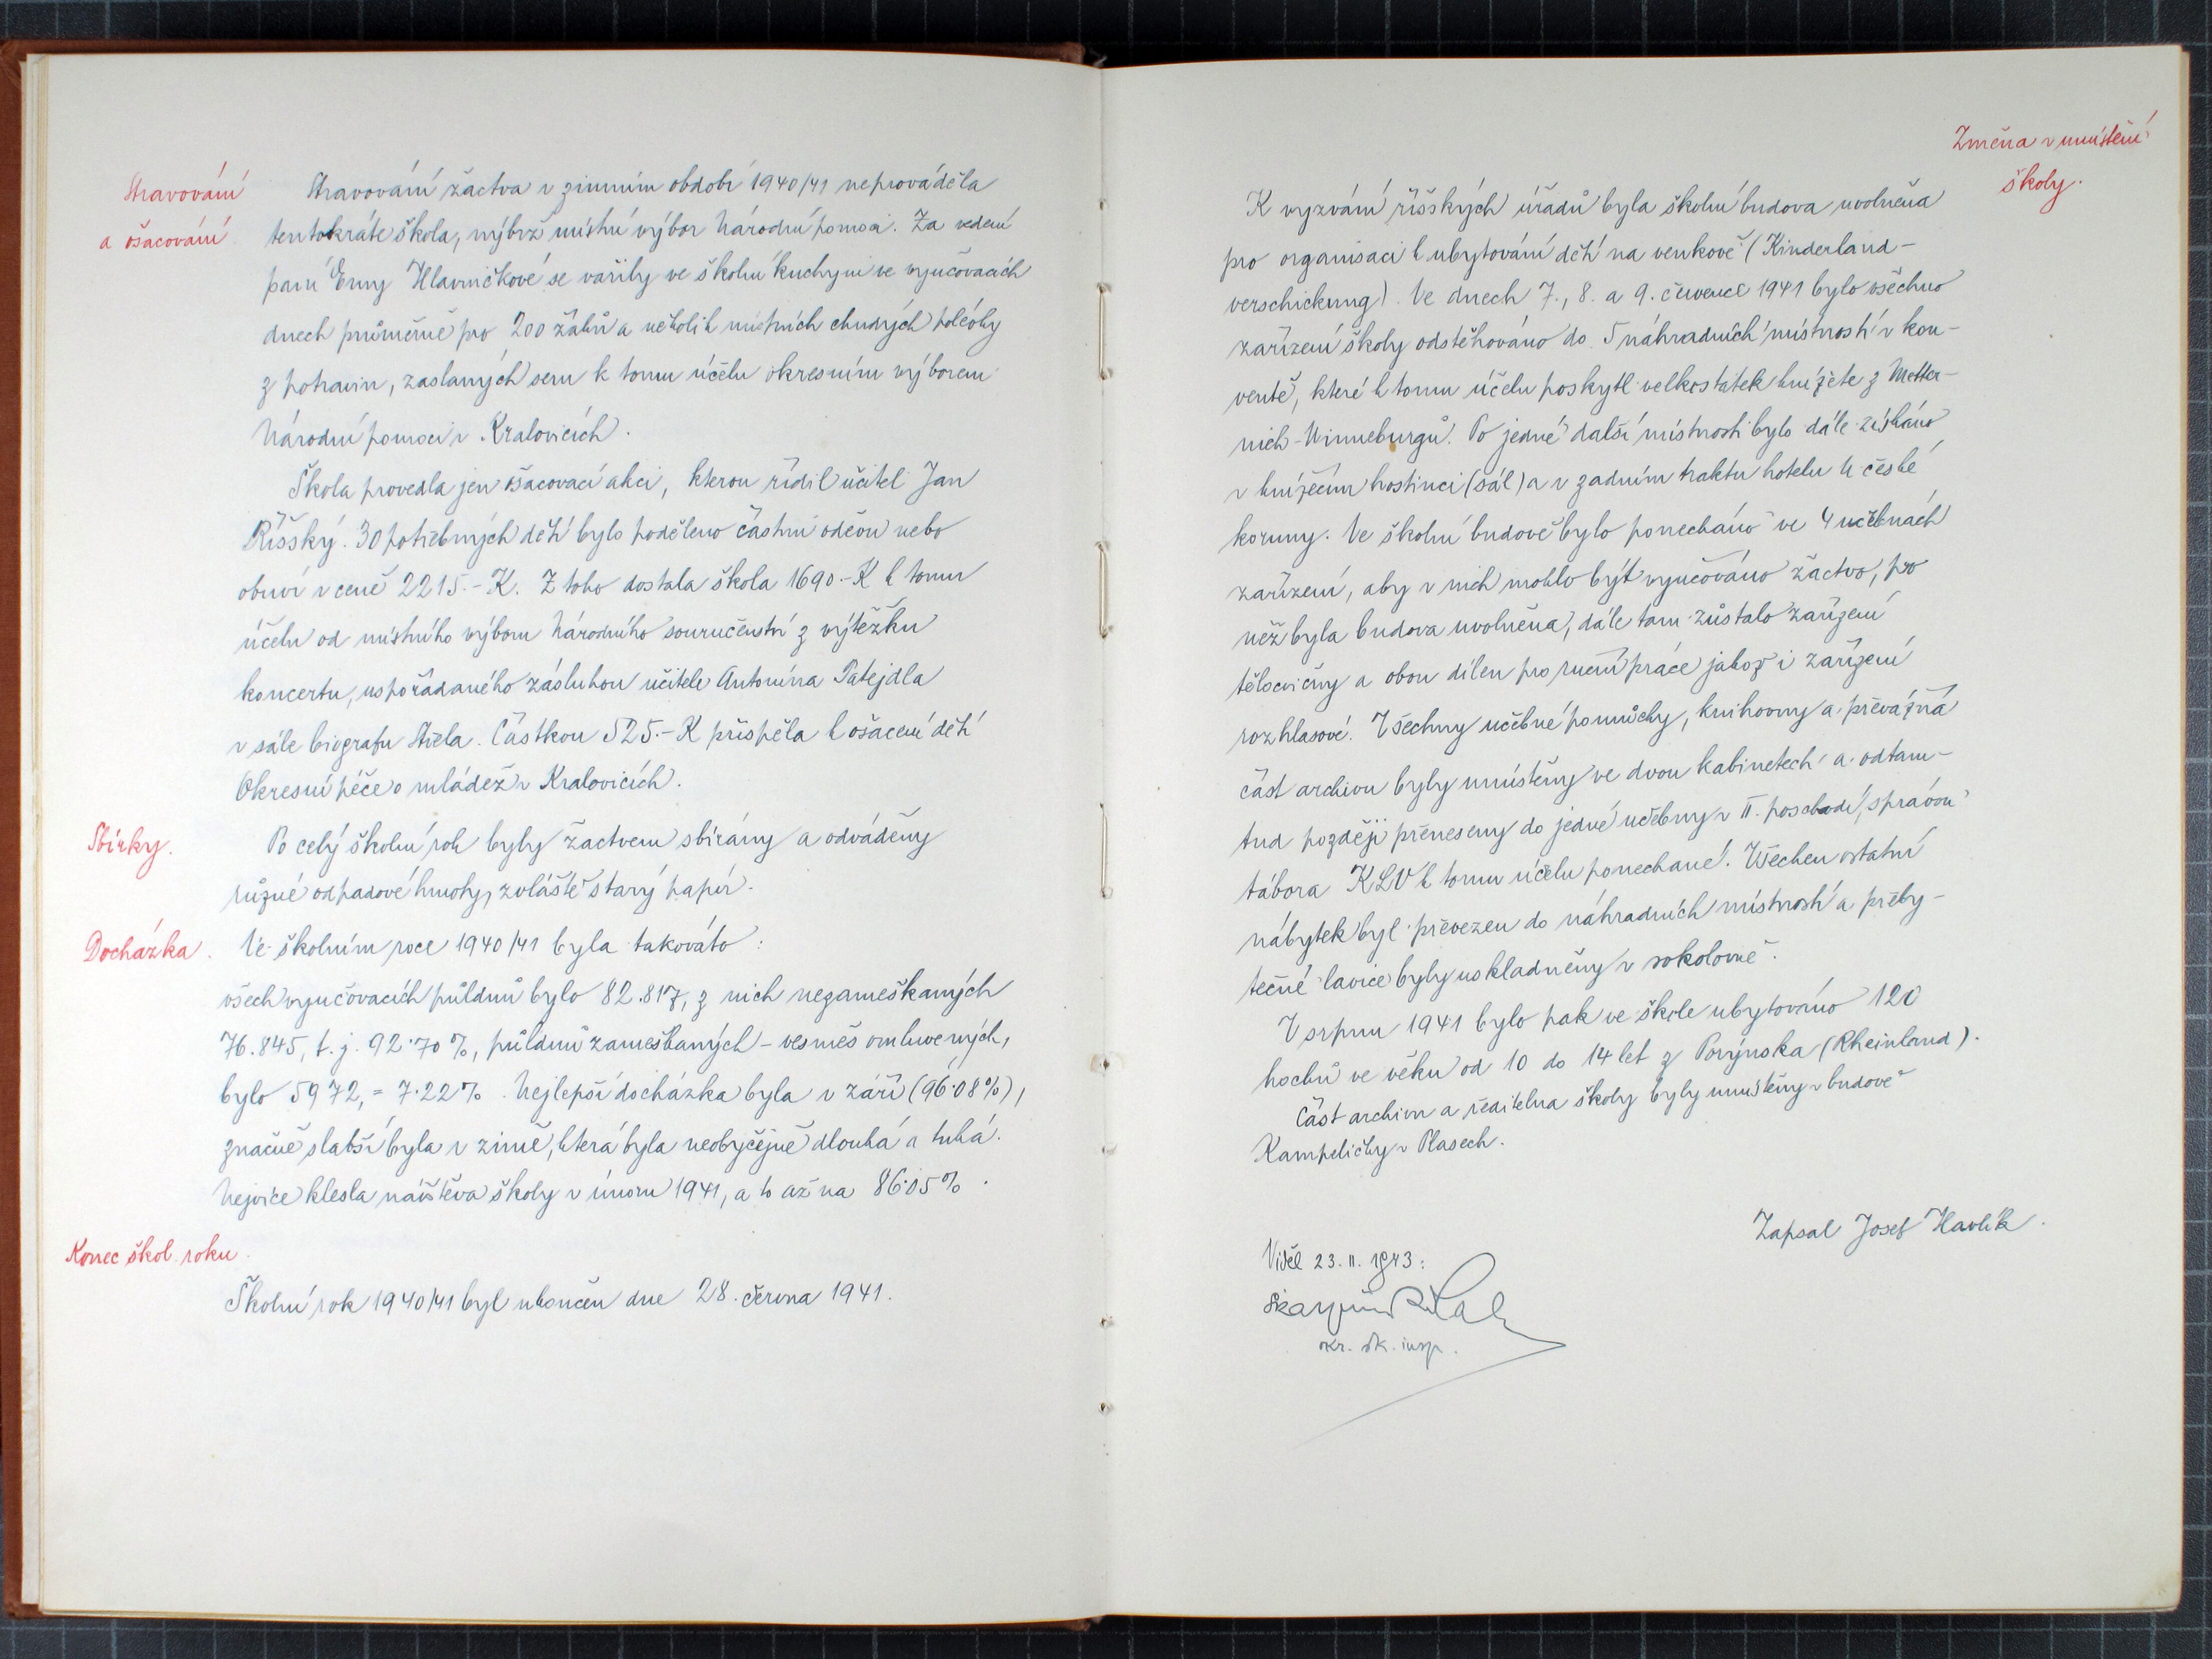 Stravování
a ošacování
Stravování žactva v zimním období 1940/41 neprováděla
tentokráte škola, nýbrž místní výbor Národní pomoci. Za vedení
paní Enny Hlavničkové se vařily ve školní kuchyni ve vyučovacích
dnech průměrně pro 200 žáků a několik místních chudých polévky
z potravin, zaslaných sem k tomu účelu okresním výborem
Národní pomoci v Kralovicích.
Škola provedla jen ošacovací akci, kterou řídil učitel Jan
Říšský. 30 potřebných dětí bylo poděleno částmi oděvu nebo
obuví v ceně 2215.- K. Z toho dostala škola 1690.- K k tomu
účelu od místního výboru Národního souručenství z výtěžku
koncertu, uspořádaného zásluhou učitele Antonína Patejdla
v sále biografu Střela. Částkou 525.- K přispěla k ošacení dětí
Okresní péče o mládež v Kralovicích.
Sbírky.
Po celý školní rok byly žactvem sbírány a odváděny
různé odpadové hmoty, zvláště starý papír.
Docházka.
Ve školním roce 1940/41 byla takováto:
všech vyučovacích půldnů bylo 82.817, z nich nezameškaných
76.845, t. j. 92.70%, půldnů zameškaných - vesměs omluvených,
bylo 5972, = 7.22%. Nejlepší docházka byla v září (96.08%),
značně slabší byla v zimě, která byla neobyčejně dlouhá a tuhá.
Nejvíce klesla návštěva školy v únoru 1941, a to až na 86.05%.
Konec škol. roku.
Školní rok 1940/41 byl ukončen dne 28. června 1941.
Změna v umístění
školy.
K vyzvání říšských úřadů byla školní budova uvolněna
pro organisaci k ubytování dětí na venkově (Kinderland-
verschickung). Ve dnech 7., 8. a 9. července 1941 bylo všechno
zařízení školy odstěhováno do 5 náhradních místností v kon-
ventě, které k tomu účelu poskytl velkostatek knížete z Metter-
nich-Winneburgů. Po jedné další místnosti bylo dále získáno
v knížecím hostinci (sál) a v zadním traktu hotelu U české
koruny. Ve školní budově bylo ponecháno ve 4 učebnách
zařízení, aby v nich mohlo být vyučováno žactvo, pro
něž byla budova uvolněna, dále tam zůstalo zařízení
tělocvičny a obou dílen pro ruční práce jakož i zařízení
rozhlasové. Všechny učebné pomůcky, knihovny a převážná
část archivu byly umístěny ve dvou kabinetech a odtam-
tud později přeneseny do jedné učebny v II. poschodí, správou
tábora KLV k tomu účelu ponechané. Všechen ostatní
nábytek byl převezen do náhradních místností a přeby-
tečné lavice byly uskladněny v sokolovně.
V srpnu 1941 bylo pak ve škole ubytováno 120
hochů ve věku od 10 do 14 let z Porýnska (Rheinland).
Část archivu a ředitelna školy byly umístěny v budově
Kampeličky v Plasech.
Zapsal Josef Havlík.
Viděl 23. II. 1943:
okr. šk. insp.